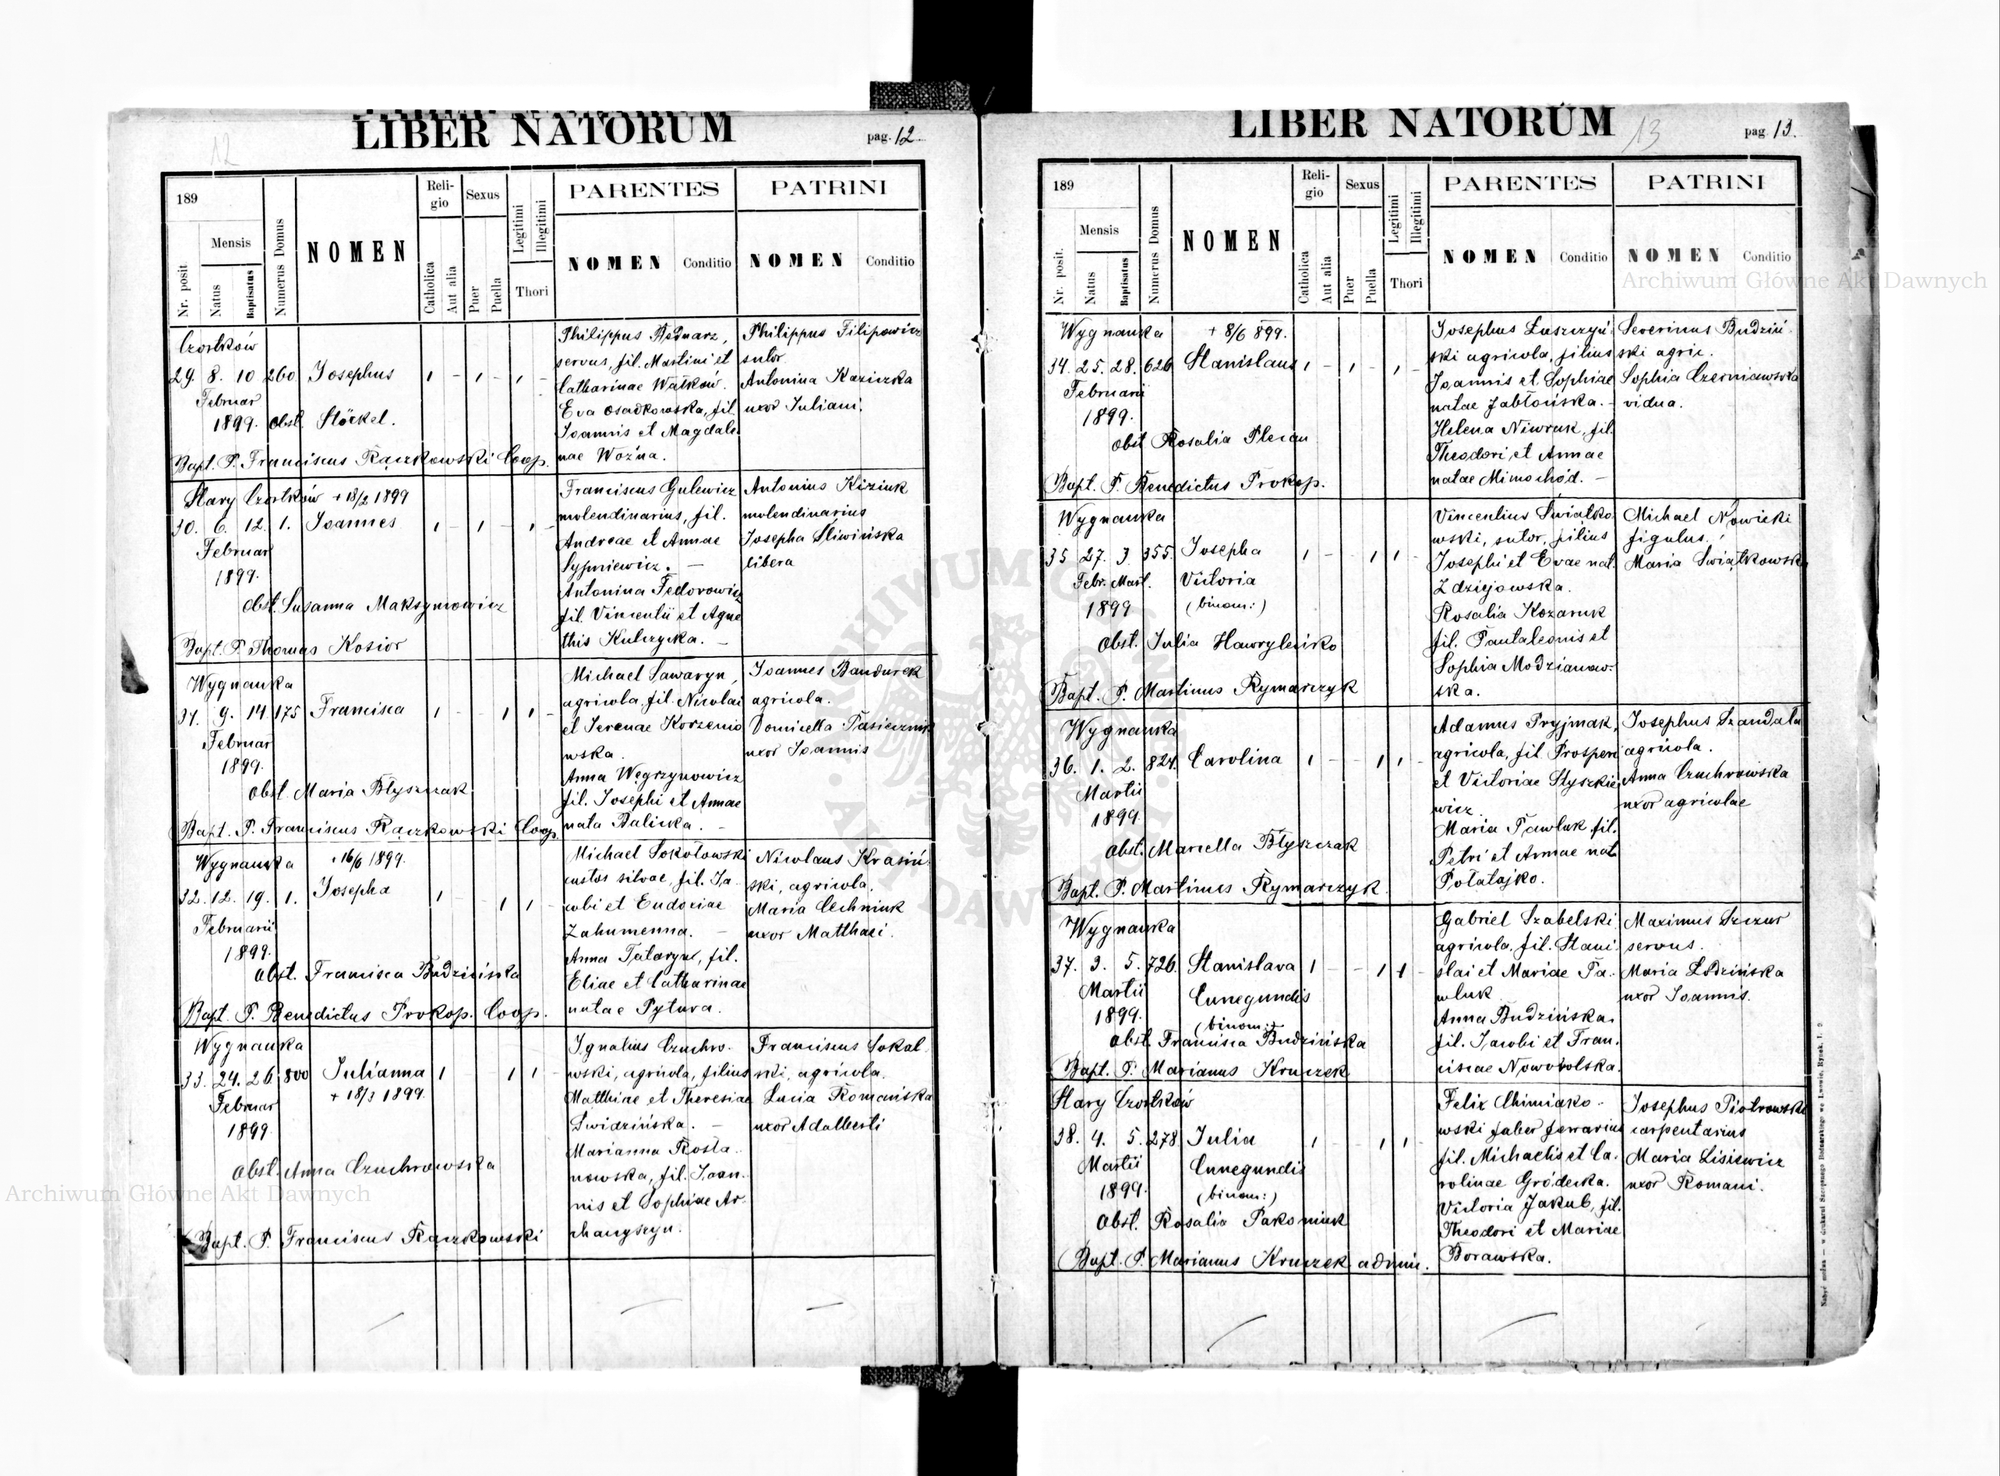 LIBER NATORUM
12
pag. 12.
189
Reli-
gio
Sexus
PARENTES
PATRINI
Mensis
Nr. posit
Natus
Baptisatus
Numerus Domus
NOMEN
Catholica
Aut alia
Puer
Puella
Legitimi
Illegitimi
Thori
NOMEN
Conditio
NOMEN
Conditio
Czortków
29. 8. 10 260 Josephus
Februar
1899. obst. Stöckel.
Bapt. P. Franciscus Rączkowski Coop.
Philippus Bednarz,
servus, fil. Martini et
Catharinae Walków.
Eva Osadkowska, fil.
Joannis et Magdale-
nae Woźna.
Philippus Filipowicz
sutor
Antonina Kaziczka
uxor Juliani.
Stary Czortków + 18/2 1899
30. 6. 12. 1. Joannes
Februar
1899.
Obst. Susanna Maksymowicz
Bapt. P. Thomas Kosior
Franciscus Gulewicz
molendinarius, fil.
Andreae et Annae
Sypniewicz. —
Antonina Fedorowicz
fil. Vincentii et Agne
this Kulczycka. —
Antonius Kiziuk
molendinarius
Josepha Śliwińska
libera
Wygnanka
31. 9. 14. 175 Francisca
Februar
1899.
Obst. Maria Błyszczak
Bapt. P. Franciscus Rączkowski Coop.
Michael Sawaryn,
agricola, fil. Nicolai
et Irenae Korzenio
wska.
Anna Węgrzynowicz
fil. Josephi et Annae
nata Balicka. —
Joannes Bandurek
agricola.
Domicella Pasiecznik
uxor Joannis
Wygnanka + 16/6 1899.
32. 12. 19. 1. Josepha
Februarii
1899.
Obst. Francisca Budzińska
Bapt. P. Benedictus Prokop. Coop.
Michael Sokołowski
custos silvae, fil. Ja-
cobi et Eudociae
Zahumenna. —
Anna Tataryn, fil.
Eliae et Catharinae
natae Pytura.
Nicolaus Krasiń-
ski, agricola.
Maria Cechniuk
uxor Matthaei.
Wygnanka
33. 24. 26 800 Julianna
+ 18/3 1899.
Februar
1899
Obst. Anna Czuchrowska
Bapt. P. Franciscus Rączkowski
Ignatius Czuchro-
wski, agricola, filius
Matthiae et Theresiae
Świdzińska. —
Marianna Rosta-
nowska, fil. Joan-
nis et Sophiae Ar-
changszyn.
Franciscus Sokal-
ski, agricola.
Lucia Romańska
uxor Adalberti
LIBER NATORUM
13
pag. 13.
189
Reli-
gio
Sexus
PARENTES
PATRINI
Mensis
Nr. posit.
Natus
Baptisatus
Numerus Domus
NOMEN
Catholica
Aut alia
Puer
Puella
Legitimi
Illegitimi
Thori
NOMEN
Conditio
NOMEN
Conditio
Wygnanka + 8/6 899.
34. 25. 28. 626 Stanislaus
Februarii
1899.
Obst Rosalia Plecan
Bapt. P. Benedictus Prokop.
Josephus Łuszczyń-
ski agricola, filius
Joannis et Sophiae
natae Jabłońska. -
Helena Niwruk, fil.
Theodori et Annae
natae Mimochód. —
Severinus Budziń-
ski agric.
Sophia Czerniawska
vidua.
Wygnanka
35 27. 3. 355. Josepha
Febr. Mart. Victoria
1899 (binom:)
Obst. Julia Hawryleńko
Bapt. P. Martinus Rymarczyk
Vincentius Świątko
wski, sutor, filius
Josephi et Evae nat.
Zdziejowska.
Rosalia Kozaruk
fil. Pantaleonis et
Sophia Modzianow-
ska.
Michael Nowicki
figulus.
Maria Świątkowska
Wygnanka
36. 1. 2. 824. Carolina
Martii
1899.
Obst. Marcella Błyszczak
Bapt. P. Martinus Rymarczyk.
Adamus Pryjmak,
agricola, fil. Prosperi
et Victoriae Styszkie
wicz.
Maria Pawluk fil.
Petri et Annae nat.
Połatajko.
Josephus Szandala
agricola.
Anna Czuchrowska
uxor agricolae
Wygnanka
37. 3. 5. 726. Stanislava
Martii Cunegundis
1899. (binom:)
Obst. Francisca Budzińska
Bapt. P. Marianus Kruczek
Gabriel Szabelski
agricola, fil. Stani
slai et Mariae Pa-
wluk
Anna Budzińska.
fil. Jacobi et Fran-
ciscae Nowobolska.
Maximus Szczur
servus.
Maria Łodzińska
uxor Joannis.
Stary Czortków
38. 4. 5. 278. Julia
Martii Cunegundis
1899. (binom:)
Obst. Rosalia Paksniuk
Bapt. P. Marianus Kruczek admin.
Felix Chimiako-
wski faber ferrarius
fil. Michaelis et Ca-
rolinae Gródecka.
Victoria Jakub, fil.
Theodori et Mariae
Borawska.
Josephus Piotrowski
carpentarius
Maria Lisiewicz
uxor Romani.
Archiwum Główne Akt Dawnych
Archiwum Główne Akt Dawnych
ARCHIWUM GŁÓWNE AKT DAWNYCH